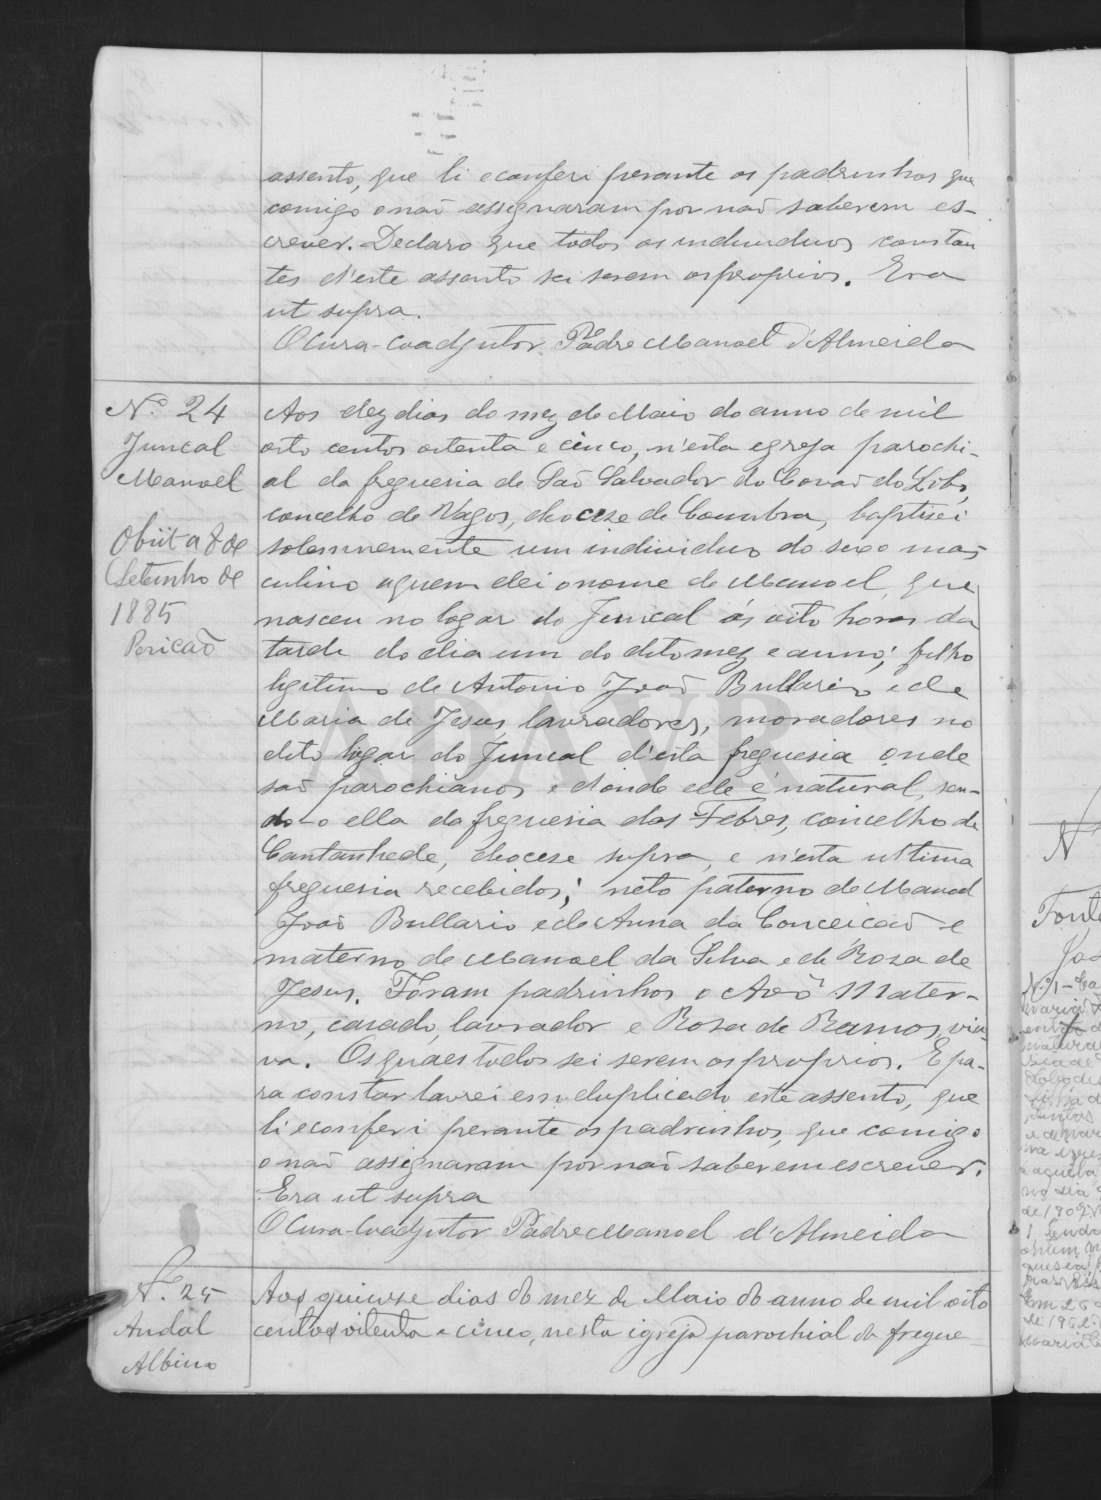 assento, que li e conferi perante os padrinhos que
comigo o naõ assignaram por naõ saberem es-
crever. Declaro que todos os individuos constan
tes d'este assento sei serem os proprios. Era
ut supra.
O Cura-Coadjutor Padre Manoel d'Almeida
Nº 24
Juncal
Manoel
Obiit a 8 de
Setembro de
1885
Aos dez dias do mez de Maio do anno de mil
oito centos oitenta e cinco, n'esta egreja parochi-
al da freguesia de Saõ Salvador do Covaõ do Lobo,
concelho de Vagos, diocese de Coimbra, baptisei
solemnemente um individuo do sexo mas-
culino a quem dei o nome de Manoel, que
nasceu no logar do Juncal ás oito horas da
tarde do dia um do dito mez e anno; filho
legitimo de Antonio Joaõ Bullario e de
Maria de Jesus, lavradores, moradores no
dito logar do Juncal d'esta freguesia onde
saõ parochianos e d'onde elle é natural, sen-
do-o ella da freguesia das Febres, concelho de
Cantanhede, diocese supra, e n'esta ultima
freguesia recebidos; neto paterno de Manoel
Joaõ Bullario e de Anna da Conceicaõ e
materno de Manoel da Silva e de Rosa de
Jesus. Foram padrinhos o Avô Mater-
no, casado, lavrador e Rosa de Ramos, viu-
va. Os quaes todos sei serem os proprios. E pa-
ra constar lavrei em duplicado este assento, que
li e conferi perante os padrinhos, que comigo
o naõ assignaram por naõ saberem escrever.
Era ut supra
O Cura-Coadjutor Padre Manoel d'Almeida
N. 25
Andal
Albino
Aos quinze dias do mez de Maio do anno de mil oito
centos oitenta e cinco, nesta igreja parochial da fregue-
ADAVR